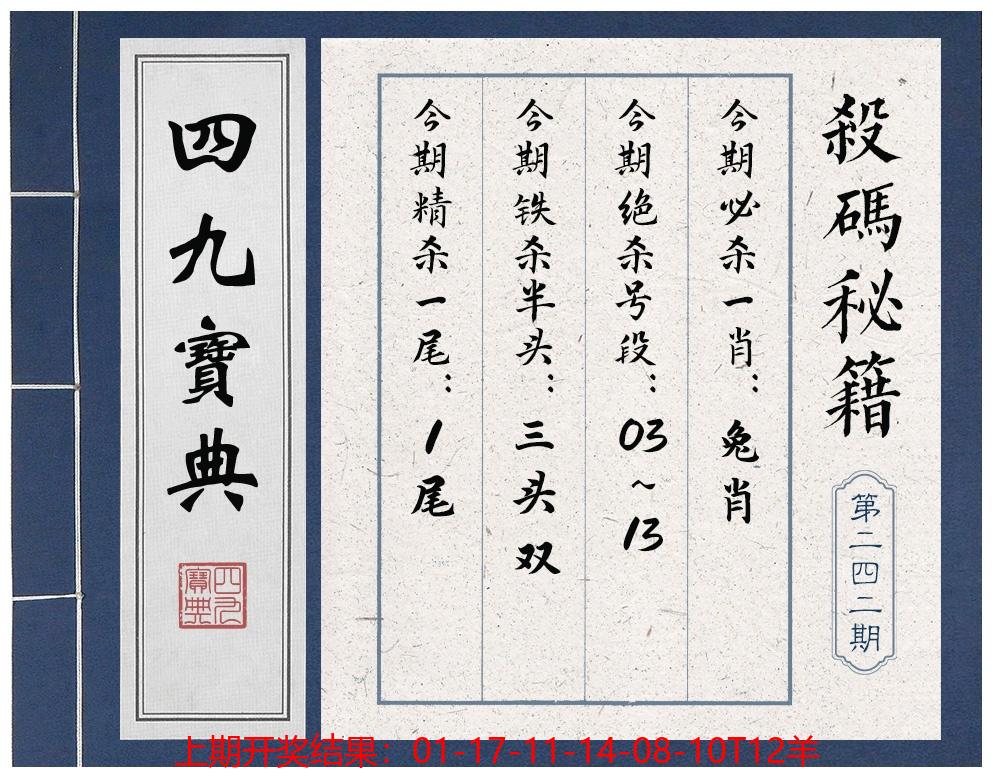 殺碼秘籍
第二四二期
今期必杀一肖：兔肖
今期绝杀号段：03~13
今期铁杀半头：三头双
今期精杀一尾：1尾
四九寶典
四九寶典
上期开奖结果：01-17-11-14-08-10T12羊